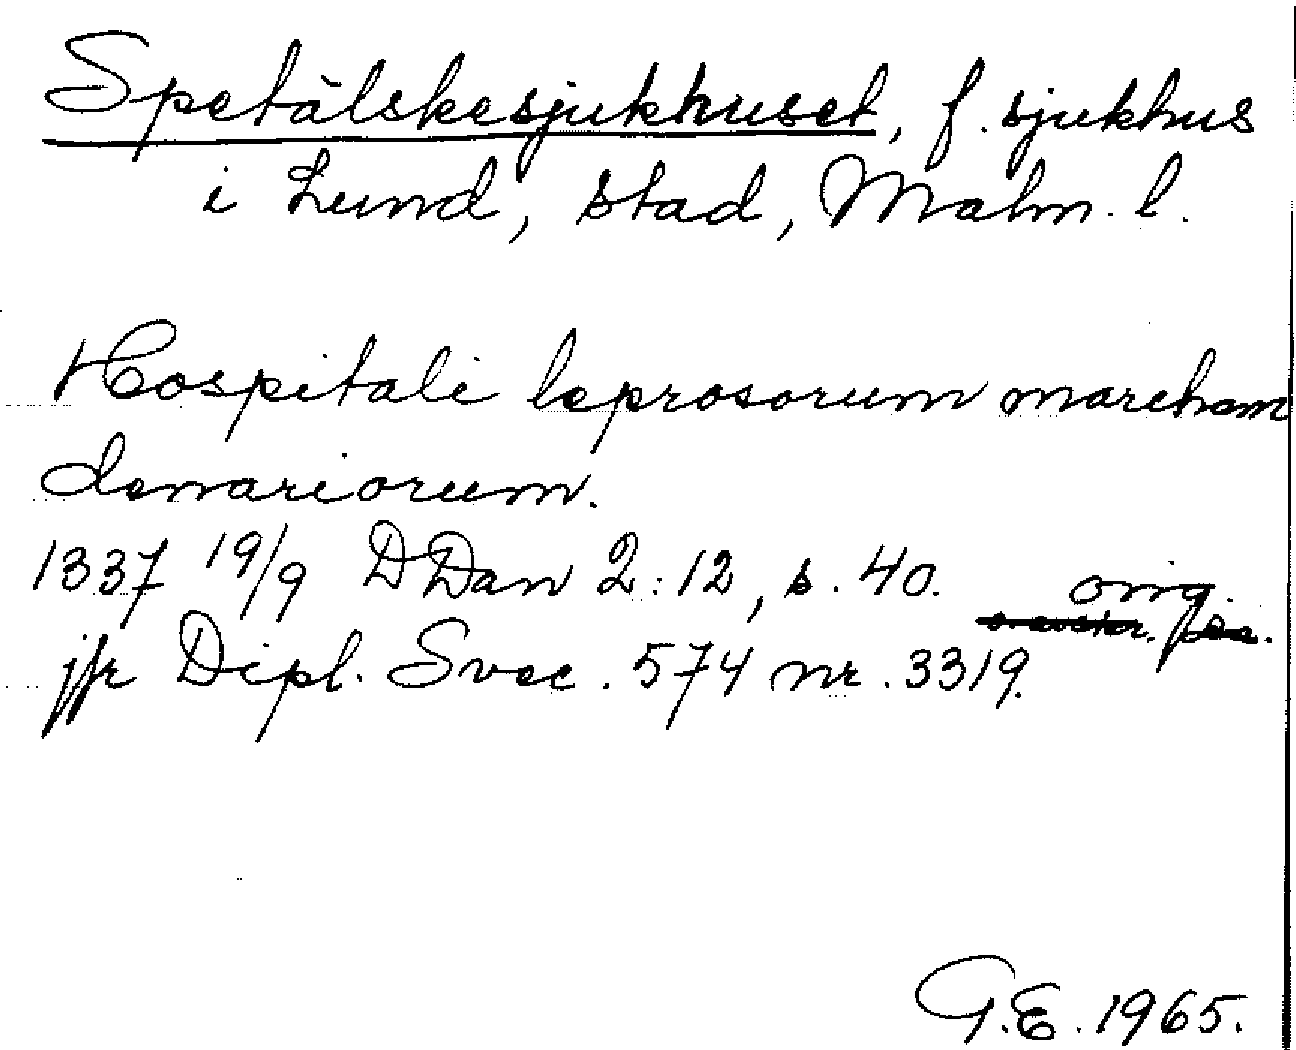 Spetälskesjukhuset, f. sjukhus
i Lund, stad, Malm. l.
Hospitali leprosorum marcham
denariorum.
1337 19/9 DDan 2:12, s. 40. orig.
jfr Dipl. Svec. 574 nr. 3319.
G.E. 1965.